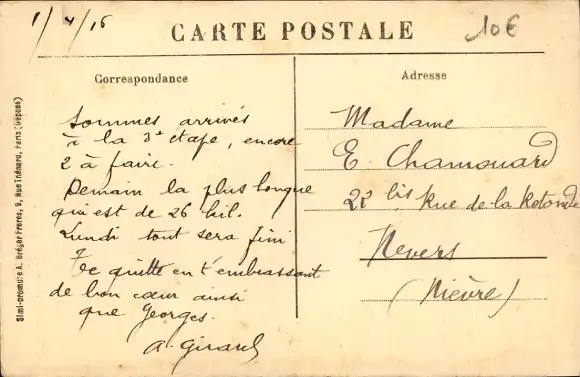 1/4/16
10€
CARTE POSTALE
Correspondance
Sommes arrivés
à la 3e étape, encore
2 à faire.
Demain la plus longue
qui est de 26 kil.
Lundi tout sera fini
Je quitte en t'embrassant
de bon cœur ainsi
que Georges.
A. Girard
Adresse
Madame
E. Chamouard
22 bis Rue de la Rotonde
Nevers
(Nièvre)
Simi-bromure A. Bréger Frères, 9, Rue Thénard, Paris (Déposé)